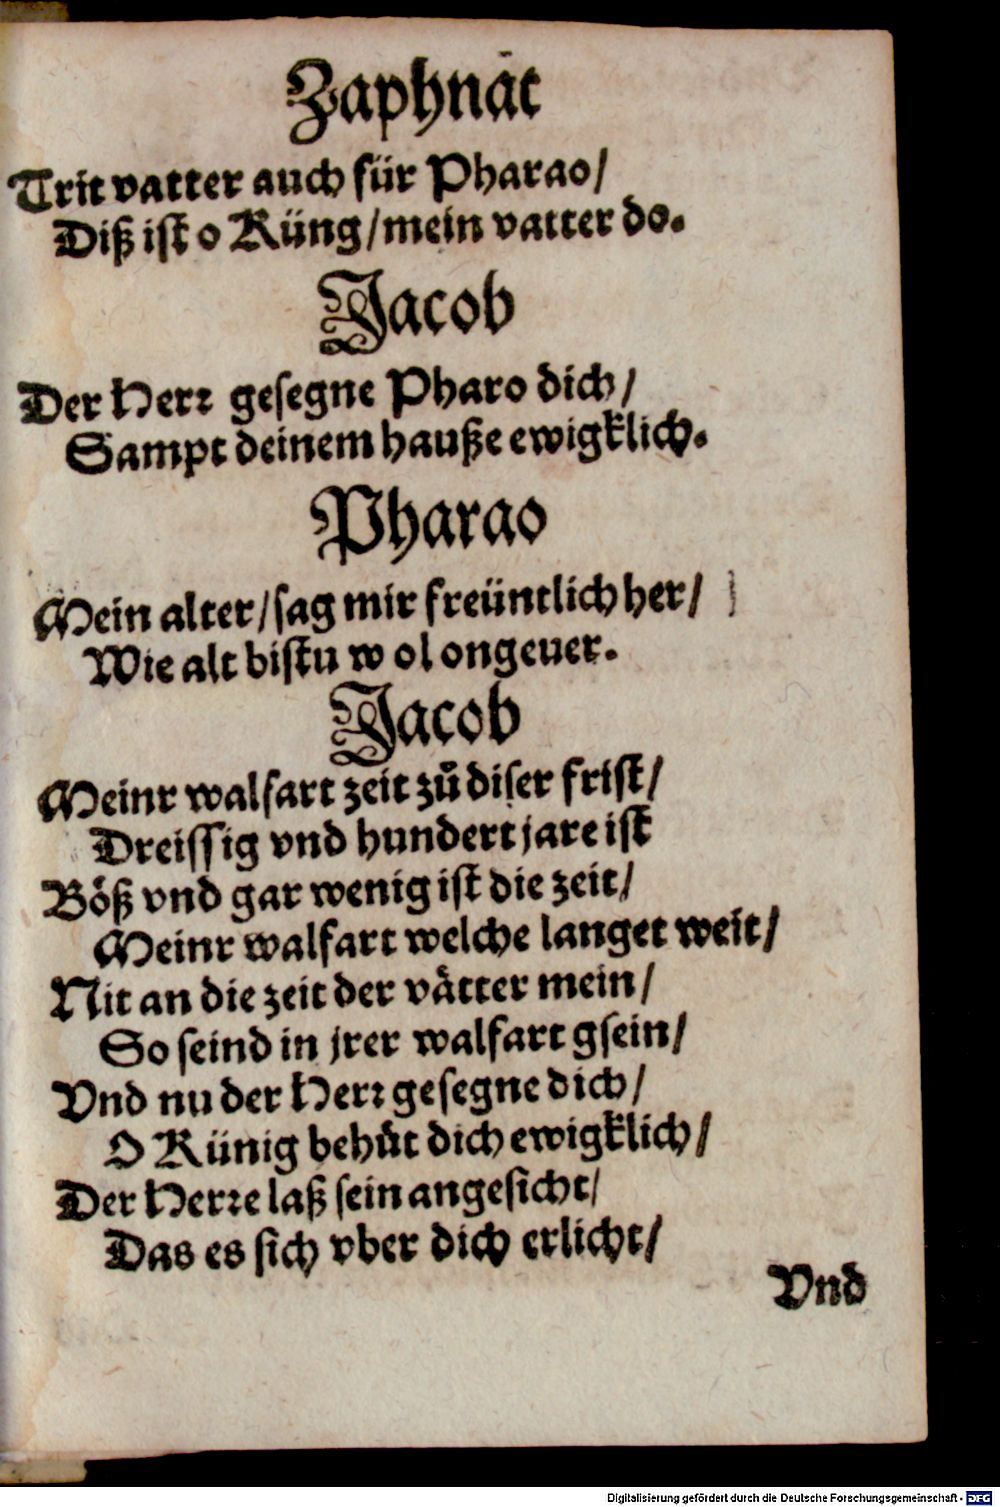 Zaphnat
Trit vatter auch für Pharao/
Diß ist o Küng/mein vatter do.
Jacob
Der Herr gesegne Pharo dich/
Sampt deinem hauße ewigklich.
Pharao
Mein alter/sag mir freüntlich her/
Wie alt bistu wol ongeuer.
Jacob
Meinr walfart zeit zuͦ diser frist/
Dreissig vnd hundert jare ist
Böß vnd gar wenig ist die zeit/
Meinr walfart welche langet weit/
Nit an die zeit der vaͤtter mein/
So seind in jrer walfart gsein/
Vnd nu der Herr gesegne dich/
O Künig behuͤt dich ewigklich/
Der Herre laß sein angesicht/
Das es sich vber dich erlicht/
Vnd
Digitalisierung gefördert durch die Deutsche Forschungsgemeinschaft - DFG